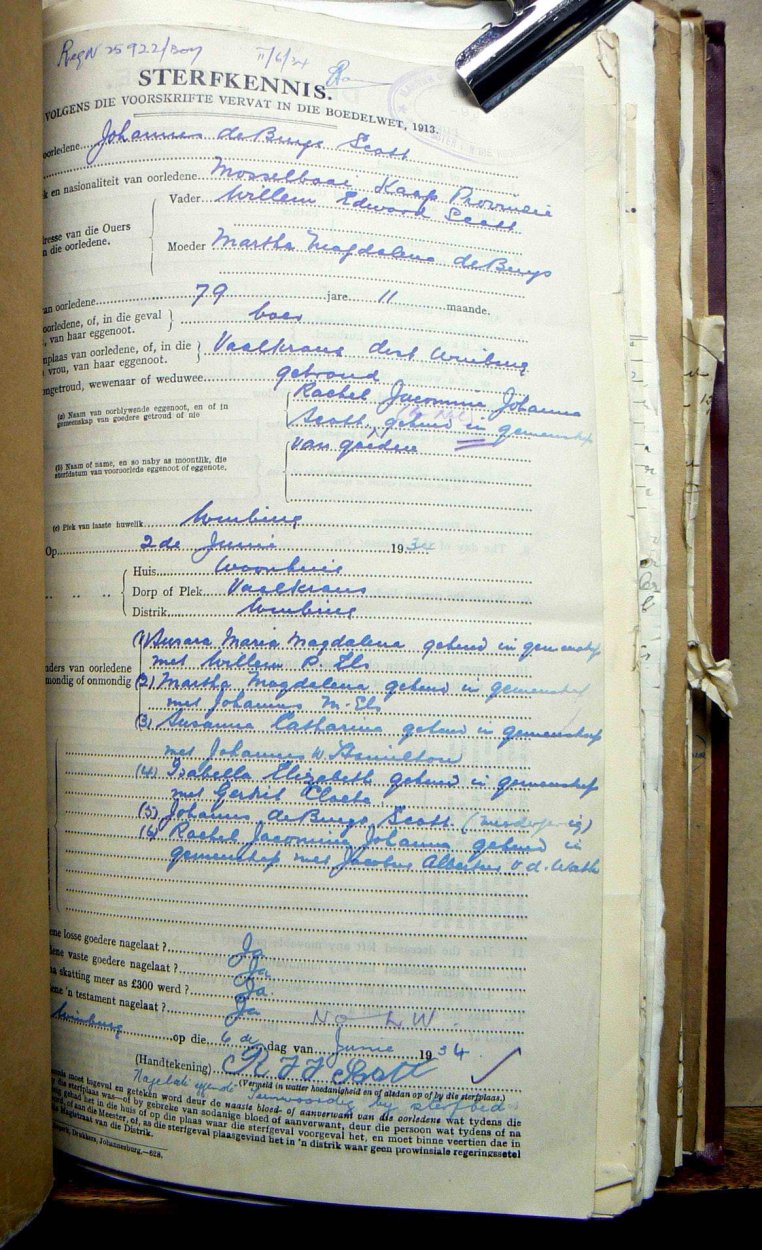 RegN 25922/Boy 11/6/34
STERFKENNIS.
VOLGENS DIE VOORSKRIFTE VERVAT IN DIE BOEDELWET, 1913.
oorledene Johannes de Buys Scott
k en nasionaliteit van oorledene Mosselbaai Kaap Provincie
Vader Willem Edward Scott
dresse van die Ouers
n die oorledene.
Moeder Martha Magdalena de Buys
an oorledene 79 jare 11 maande.
oorledene, of, in die geval boer
, van haar eggenoot.
nplaas van oorledene, of, in die Vaalkrans dist Winburg
vrou, van haar eggenoot.
ongetroud, wewenaar of weduwee getroud
(a) Naam van oorblywende eggenoot, en of in Rachel Jacomina Johanna
gemeenskap van goedere getrond of nie Scott, gehuwd in gemeenschap
van goedere
(b) Naam of name, en so naby as moontlik, die
sterfdatum van vooroorlede eggenoot of eggenote.
(c) Plek van laaste huwelik Winburg
Op 2de Junie 1934
Huis Woonhuis
Dorp of Plek Vaalkrans
Distrik Winburg
(1) Maria Magdalena gehuwd in gemeenschap
nders van oorledene met Willem P. Els
mondig of onmondig (2) Martha Magdalena gehuwd in gemeenschap
met Johannes M. Els
(3) Susanna Catharina gehuwd in gemeenschap
met Johannes W Hamilton
(4) Isabella Elizabeth gehuwd in gemeenschap
met Gerhit Cloete
(5) Johannes de Buys Scott (meerderjarig)
(6) Rachel Jacomina Johanna gehuwd in
gemeenschap met Jacobus Albertus v.d. Wath
ene losse goedere nagelaat ? Ja
lene vaste goedere nagelaat ? Ja
a skatting meer as £300 werd ? Ja
ene 'n testament nagelaat ? Ja No L.W.
Winburg op die 6de dag van Junie 1934
(Handtekening) R J J Scott
(Vermeld in watter hoedanigheid en of aldan op of by die sterfplaas.)
Nagelate eggenote Teenwoordig by sterfbed
ennis moet ingevul en geteken word deur de naaste bloed- of aanverwant van die oorledene wat tydens die
die sterfplaas was—of by gebreke van sodanige bloed of aanverwant, deur die persoon wat tydens of na
gehad het in die huis of op die plaas waar die sterfgeval voorgeval het, en moet binne veertien dae in
, of aan die Meester, of, as die sterfgeval plaasgevind het in 'n distrik waar geen provinsiale regeringssetel
Magistraat van die Distrik.
Drukkers, Johannesburg.—628.